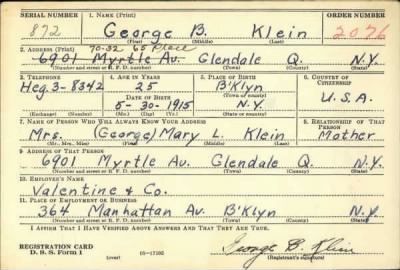 SERIAL NUMBER 1. NAME (Print) ORDER NUMBER
872 George B. Klein 2076
(First) (Middle) (Last)
2. ADDRESS (Print) 70-32 65 Place
6901 Myrtle Av. Glendale Q. N.Y.
(Number and street or R. F. D. number) (Town) (County) (State)
3. TELEPHONE 4. AGE IN YEARS 5. PLACE OF BIRTH 6. COUNTRY OF CITIZENSHIP
Heg. 3-8342 25 B'Klyn
DATE OF BIRTH (Town or county) U.S.A.
5-30-1915 N.Y.
(Exchange) (Number) (Mo.) (Day) (Yr.) (State or country)
7. NAME OF PERSON WHO WILL ALWAYS KNOW YOUR ADDRESS 8. RELATIONSHIP OF THAT PERSON
Mrs. (George) Mary L. Klein Mother
(Mr., Mrs., Miss) (First) (Middle) (Last)
9. ADDRESS OF THAT PERSON
6901 Myrtle Av. Glendale Q. N.Y.
(Number and street or R. F. D. number) (Town) (County) (State)
10. EMPLOYER'S NAME
Valentine & Co.
11. PLACE OF EMPLOYMENT OR BUSINESS
364 Manhattan Av. B'Klyn N.Y.
(Number and street or R. F. D. number) (Town) (County) (State)
I AFFIRM THAT I HAVE VERIFIED ABOVE ANSWERS AND THAT THEY ARE TRUE.
REGISTRATION CARD
D. S. S. Form 1 16-17105 George B. Klein
(over) (Registrant's signature)